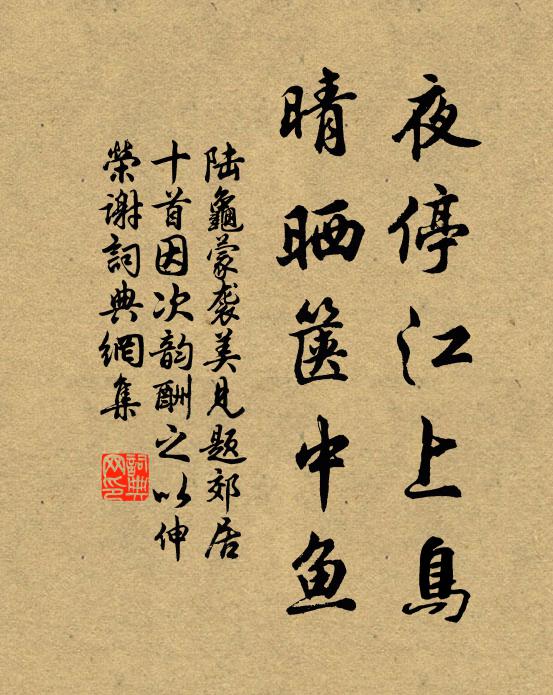 夜停江上鳥
晴晒篋中魚
陆龜蒙袭美見題郊居
十首因次韵酬之以伸
榮谢詞典網集
詞典
网印